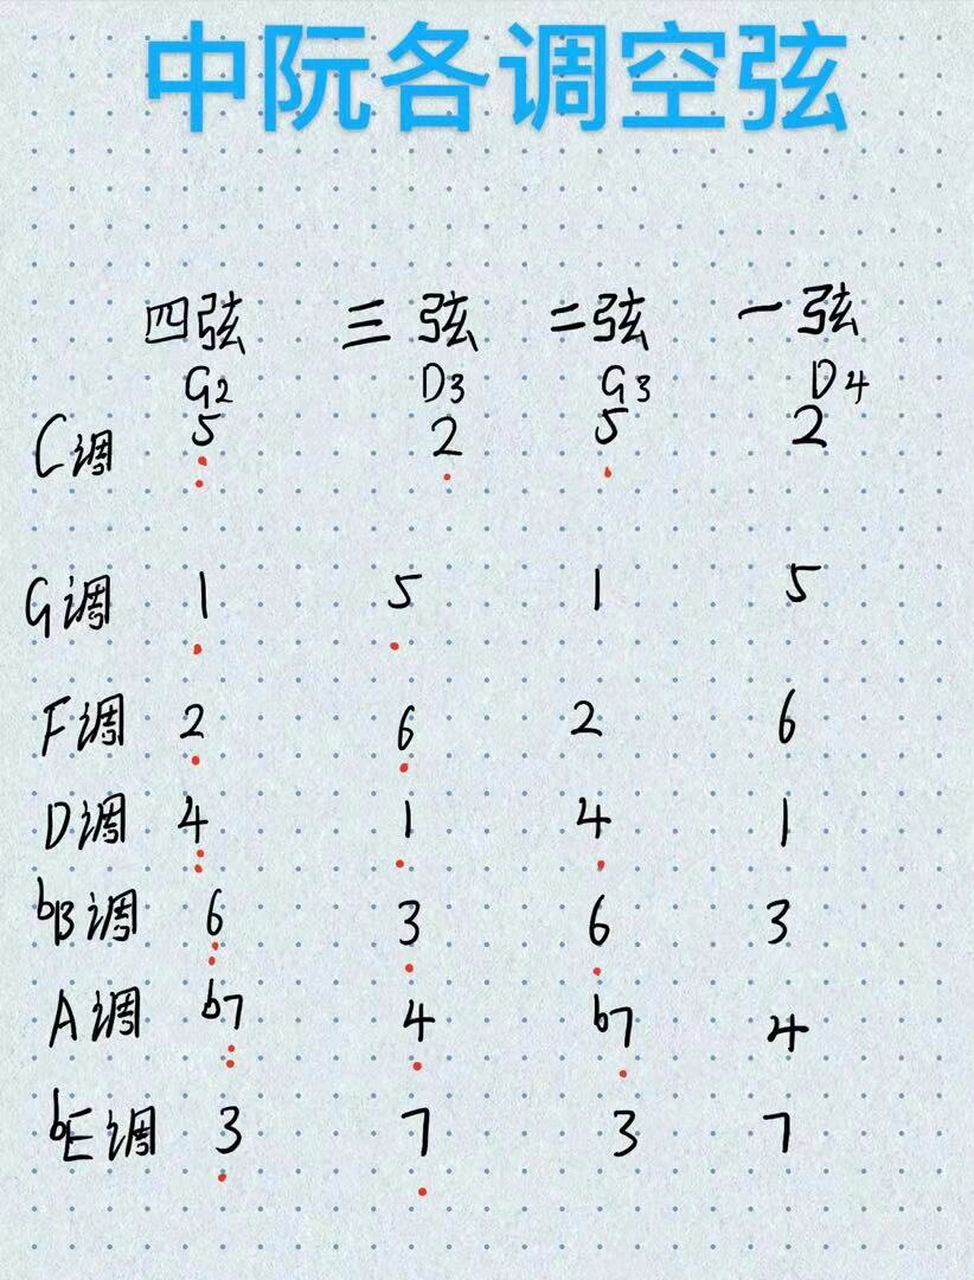 中阮各调空弦
四弦 三弦 二弦 一弦
G2 D3 G3 D4
C调 5̣̣ 2̣ 5̣ 2
G调 1̣ 5̣ 1 5
F调 2̣ 6̣ 2 6
D调 4̣̣ 1̣ 4̣ 1
bB调 6̣̣ 3̣ 6̣ 3
A调 b7̣̣ 4̣ b7̣ 4
bE调 3̣ 7̣ 3 7